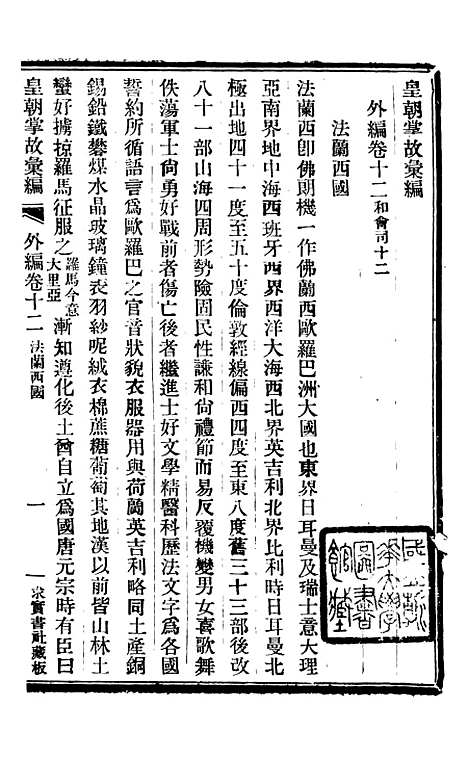 皇朝掌故彙編
外編卷十二和會司十二
法蘭西國
法蘭西卽佛朗機一作佛蘭西歐羅巴洲大國也東界日耳曼及瑞士意大理
亞南界地中海西班牙西界西洋大海西北界英吉利北界比利時日耳曼北
極出地四十一度至五十度倫敦經線偏西四度至東八度舊三十三部後改
八十一部山海四周形勢險固民性謙和尙禮節而易反覆機變男女喜歌舞
佚蕩軍士尙勇好戰前者傷亡後者繼進士好文學精醫科歷法文字爲各國
誓約所循語言爲歐羅巴之官音狀貌衣服器用與荷蘭英吉利略同土產銅
錫鉛鐵礬煤水晶玻璃鐘表羽紗呢絨衣棉蔗糖葡萄其地漢以前皆山林土
蠻好擄掠羅馬征服之羅馬今意大里亞漸知遵化後土酋自立爲國唐元宗時有臣曰
皇朝掌故彙編
外編卷十二
法蘭西國
一
求實書社藏板